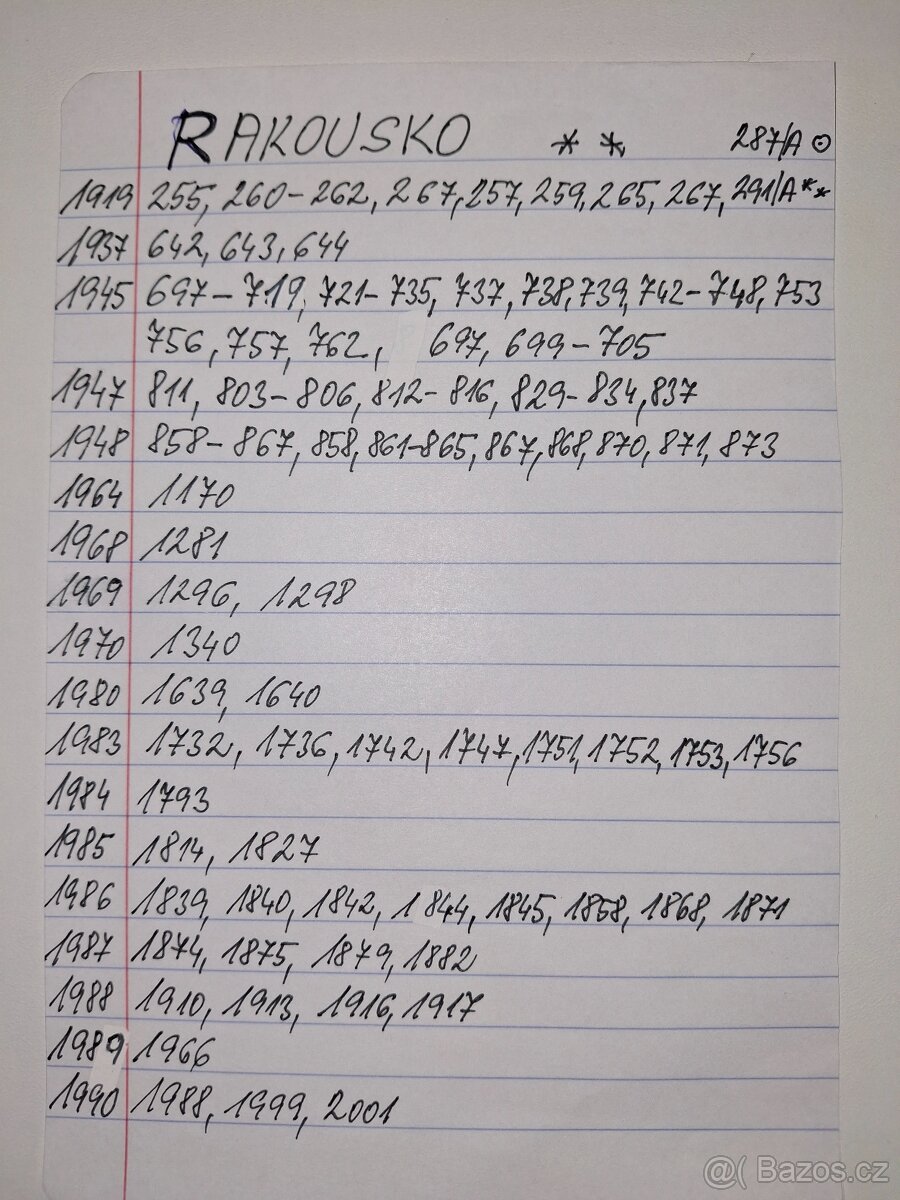 RAKOUSKO ** 287/A ⊙
1919 255, 260-262, 267, 257, 259, 265, 267, 291/A**
1937 642, 643, 644
1945 697-719, 721-735, 737, 738, 739, 742-748, 753
756, 757, 762, 697, 699-705
1947 811, 803-806, 812-816, 829-834, 837
1948 858-867, 858, 861-865, 867, 868, 870, 871, 873
1964 1170
1968 1281
1969 1296, 1298
1970 1340
1980 1639, 1640
1983 1732, 1736, 1742, 1747, 1751, 1752, 1753, 1756
1984 1793
1985 1814, 1827
1986 1839, 1840, 1842, 1844, 1845, 1858, 1868, 1871
1987 1874, 1875, 1879, 1882
1988 1910, 1913, 1916, 1917
1989 1966
1990 1988, 1999, 2001
@( Bazos.cz